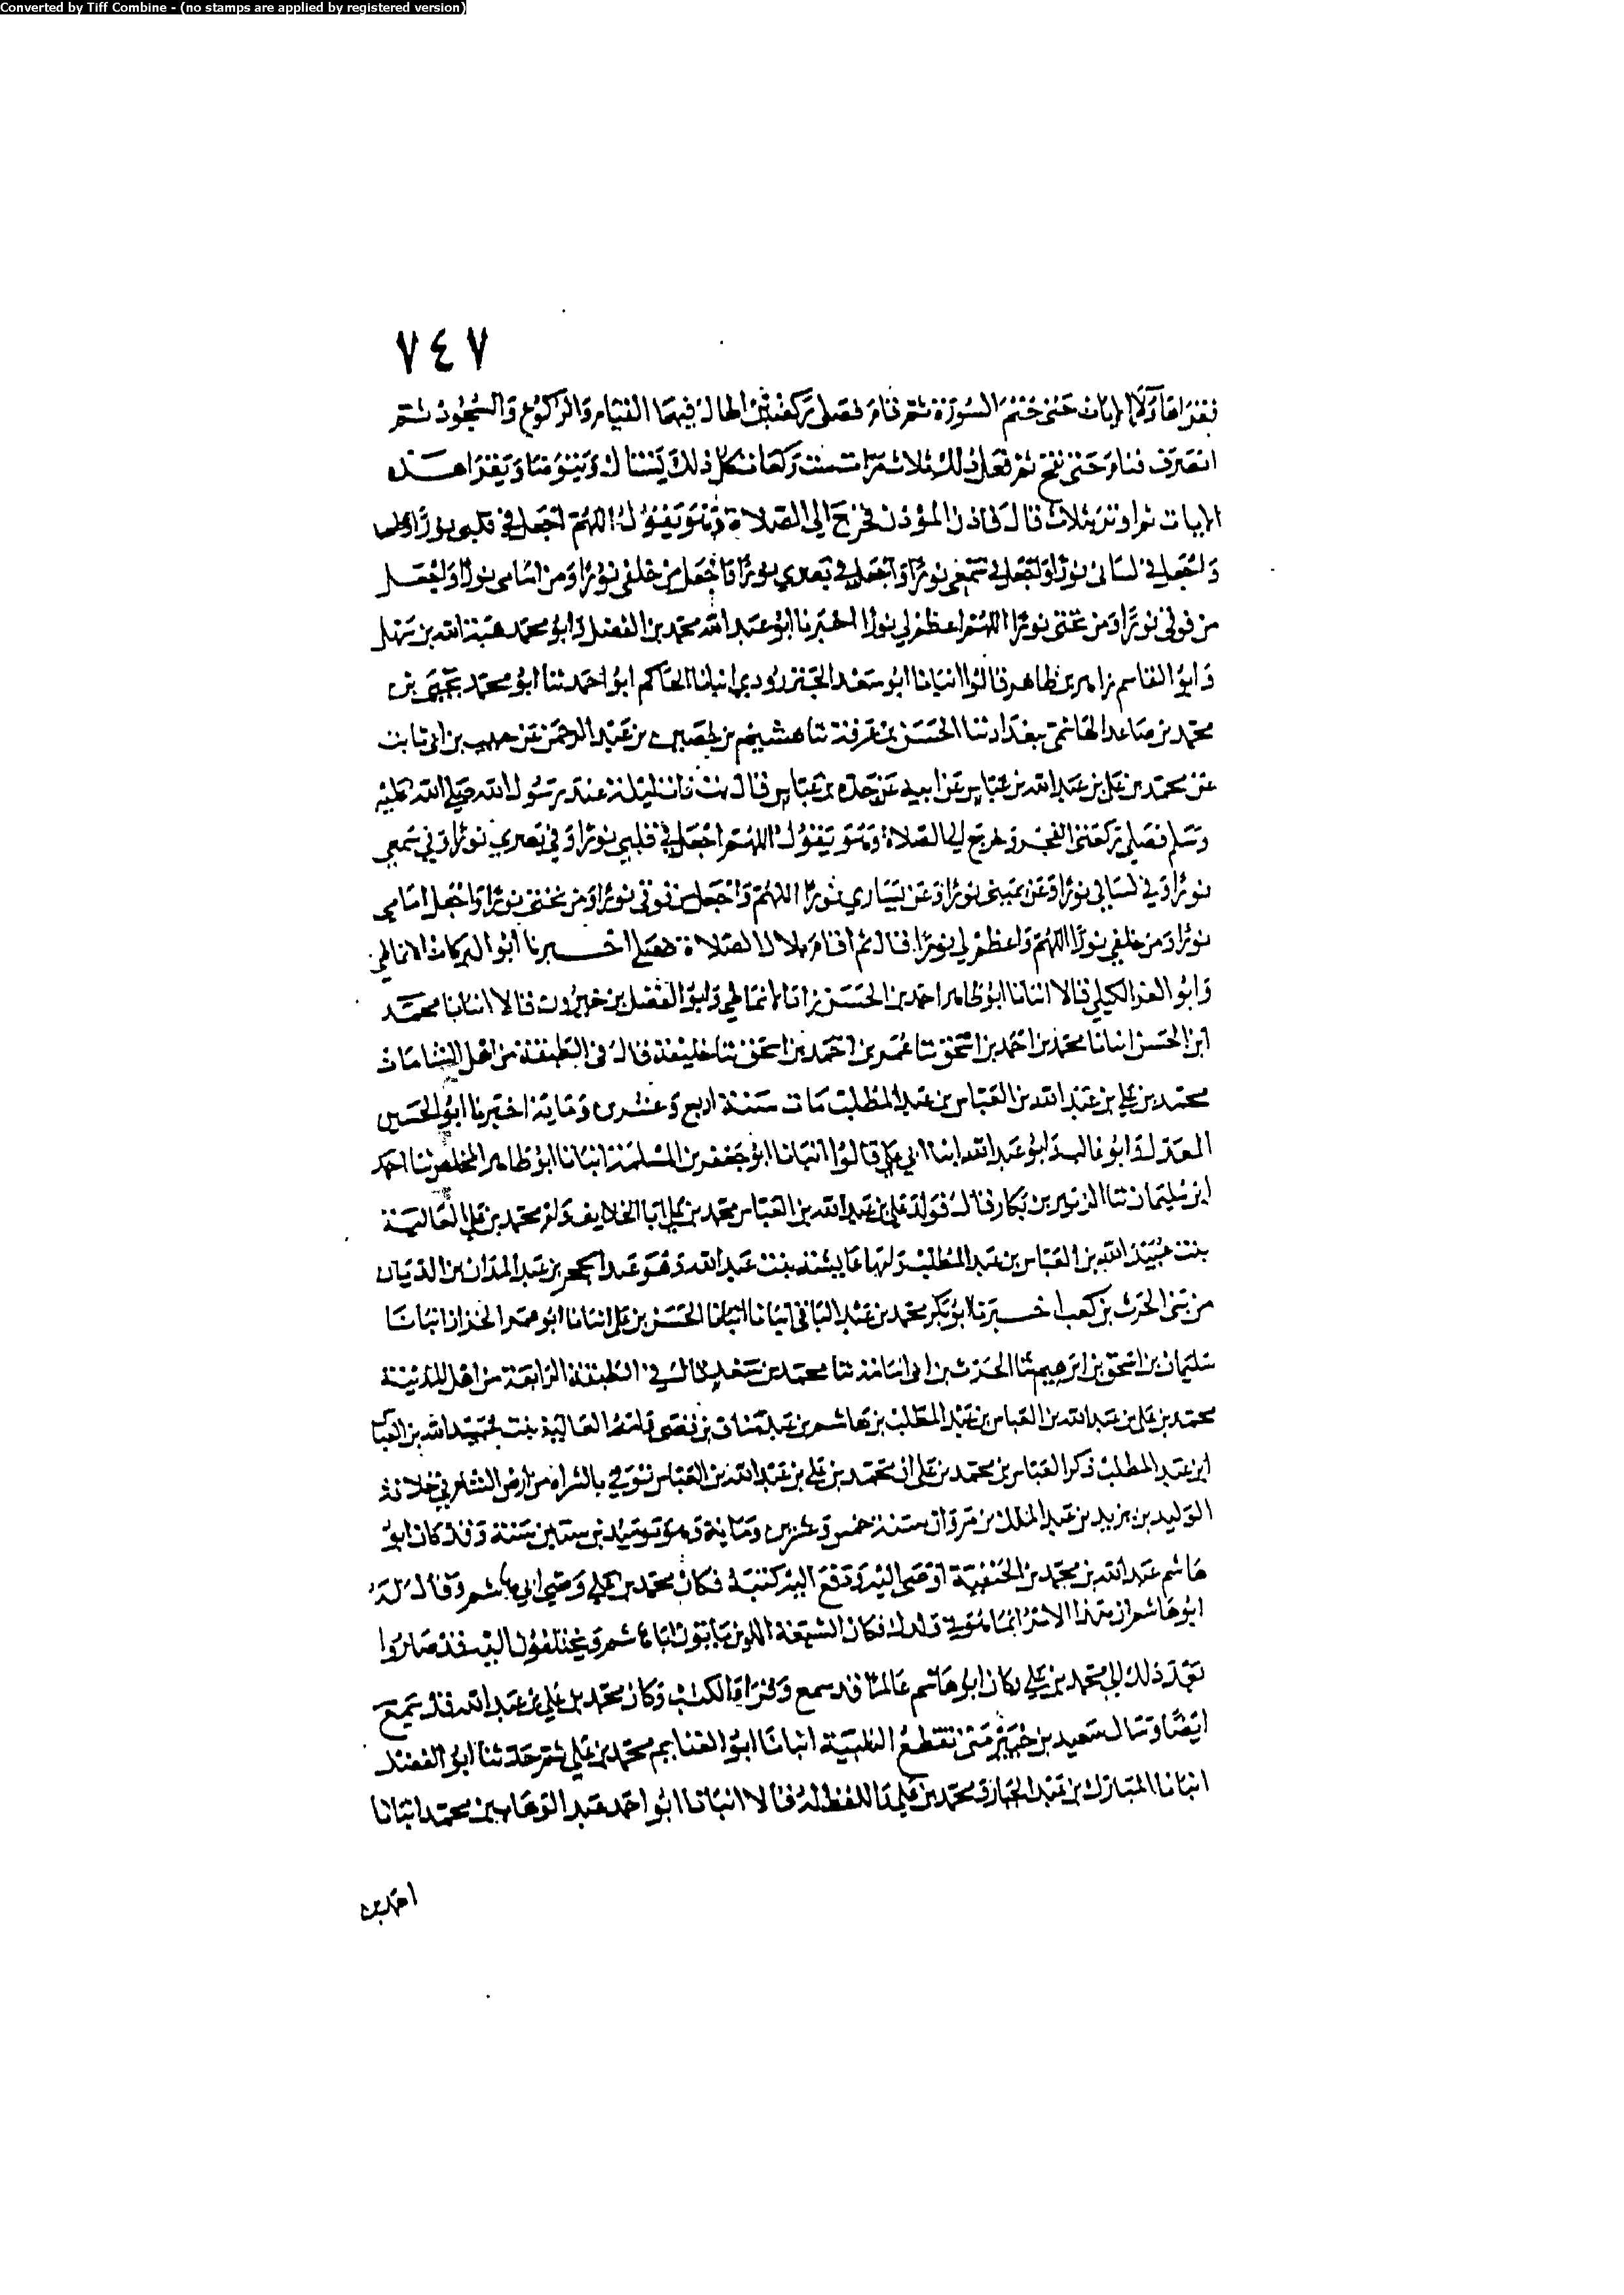 Converted by Tiff Combine - (no stamps are applied by registered version)
٧٤٧
فقرا هاولا الايات حتى ختم السورة ثم قام فصلى ركعتين اطال فيهما القيام والركوع والسجود ثم
انصرف فنام حتى نفخ ثم فعل ذلك ثلاث مرات ست ركعات كل ذلك يستاك ويتوضا ويقرا هذه
الايات ثم اوتر بثلاث قال فاذن المؤذن فخرج الى الصلاة وهو يقول اللهم اجعل في قلبي نورا
واجعل في لساني نورا واجعل في سمعي نورا واجعل في بصري نورا واجعل من خلفي نورا ومن امامي نورا واجعل
من فوقي نورا ومن تحتي نورا اللهم اعظم لي نورا اخبرنا ابو عبد الله محمد بن الفضل وابو محمد هبة الله بن سهل
وابو القاسم زاهر بن طاهر قالوا انبانا ابو سعد الجنزرودي انبانا الحاكم ابو احمد ثنا ابو محمد يحيى بن
محمد بن صاعد الهاشمي ببغداد ثنا الحسن بن عرفة ثنا هشيم بن حصين بن عبد الرحمن عن حبيب بن ابي ثابت
عن محمد بن علي بن عبد الله بن عباس عن ابيه عن جده بن عباس قال بت ذات ليلة عند رسول الله صلى الله عليه
وسلم فصلى ركعتى الفجر وخرج الى الصلاة وهو يقول اللهم اجعل في قلبي نورا وفي بصري نورا وفي سمعي
نورا وفي لساني نورا وعن يميني نورا وعن يساري نورا اللهم واجعل من فوقي نورا ومن تحتي نورا واجعل امامي
نورا ومن خلفي نورا اللهم واعظم لي نورا قال ثم اقام بلال الصلاة فصلى اخبرنا ابو البركات الانماطي
وابو العز الكيلي قالا انبانا ابو طاهر احمد بن الحسن زاد الانماطي وابو الفضل بن خيرون قالا انبانا محمد
ابن الحسن انبانا محمد بن احمد بن اسحق ثنا عمر بن احمد بن اسحق ثنا خليفة قال في الطبقة من اهل الشامات
محمد بن علي بن عبد الله بن العباس بن عبد المطلب مات سنة اربع وعشرين ومايه اخبرنا ابو الحسين
المعدل وابو غالب وابو عبد الله ابنا ابي علي قالوا انبانا ابو جعفر بن المسلمة انبانا ابو طاهر المخلص ثنا احمد
ابن سليمان ثنا الزبير بن بكار قال فولد علي بن عبد الله بن العباس محمد بن علي ابا الخلايف وام محمد بن علي العالية
بنت عبيد الله بن العباس بن عبد المطلب وامها عايشة بنت عبد الله وهو عبد الحجر بن عبد المدان بن الديان
من بني الحرث بن كعب اخبرنا ابو بكر محمد بن عبد الباقي انبانا الحسن بن علي انبانا ابو عمر الخزاز انبانا
سليمان بن اسحق بن ابرهيم ثنا الحرث بن ابي اسامة ثنا محمد بن سعد قال في الطبقة الرابعة من اهل المدينة
محمد بن علي بن عبد الله بن العباس بن عبد المطلب بن هاشم بن عبد مناف بن قصي وامه العالية بنت عبيد الله بن العباس
ابن عبد المطلب ذكر العباس بن محمد بن علي ان محمد بن علي بن عبد الله بن العباس توفي بالشراه من ارض الشام في خلافة
الوليد بن يزيد بن عبد الملك بن مروان سنة خمس وعشرين ومايه وهو يوميذ بن ستين سنة وقد كان ابو
هاشم عبد الله بن محمد بن الحنفية اوصى اليه ودفع اليه كتبه فكان محمد بن علي وصي ابي هاشم وقال له
ابو هاشم ان هذا الامر انما هو في ولدك فكان الشيعة الذين ياتون ابا هاشم ويختلفون اليه قد صاروا
بعد ذلك الى محمد بن علي وكان ابو هاشم عالما قد سمع وقرا الكتب وكان محمد بن علي بن عبد الله قد سمع
ايضا وسال سعيد بن جبير متى تقطع التلبية انبانا ابو الغنايم محمد بن علي ثم حدثنا ابو الفضل
انبانا المبارك بن عبد الجبار ومحمد بن علي واللفظ له قالا انبانا ابو احمد عبد الوهاب بن محمد انبانا
احمد بن